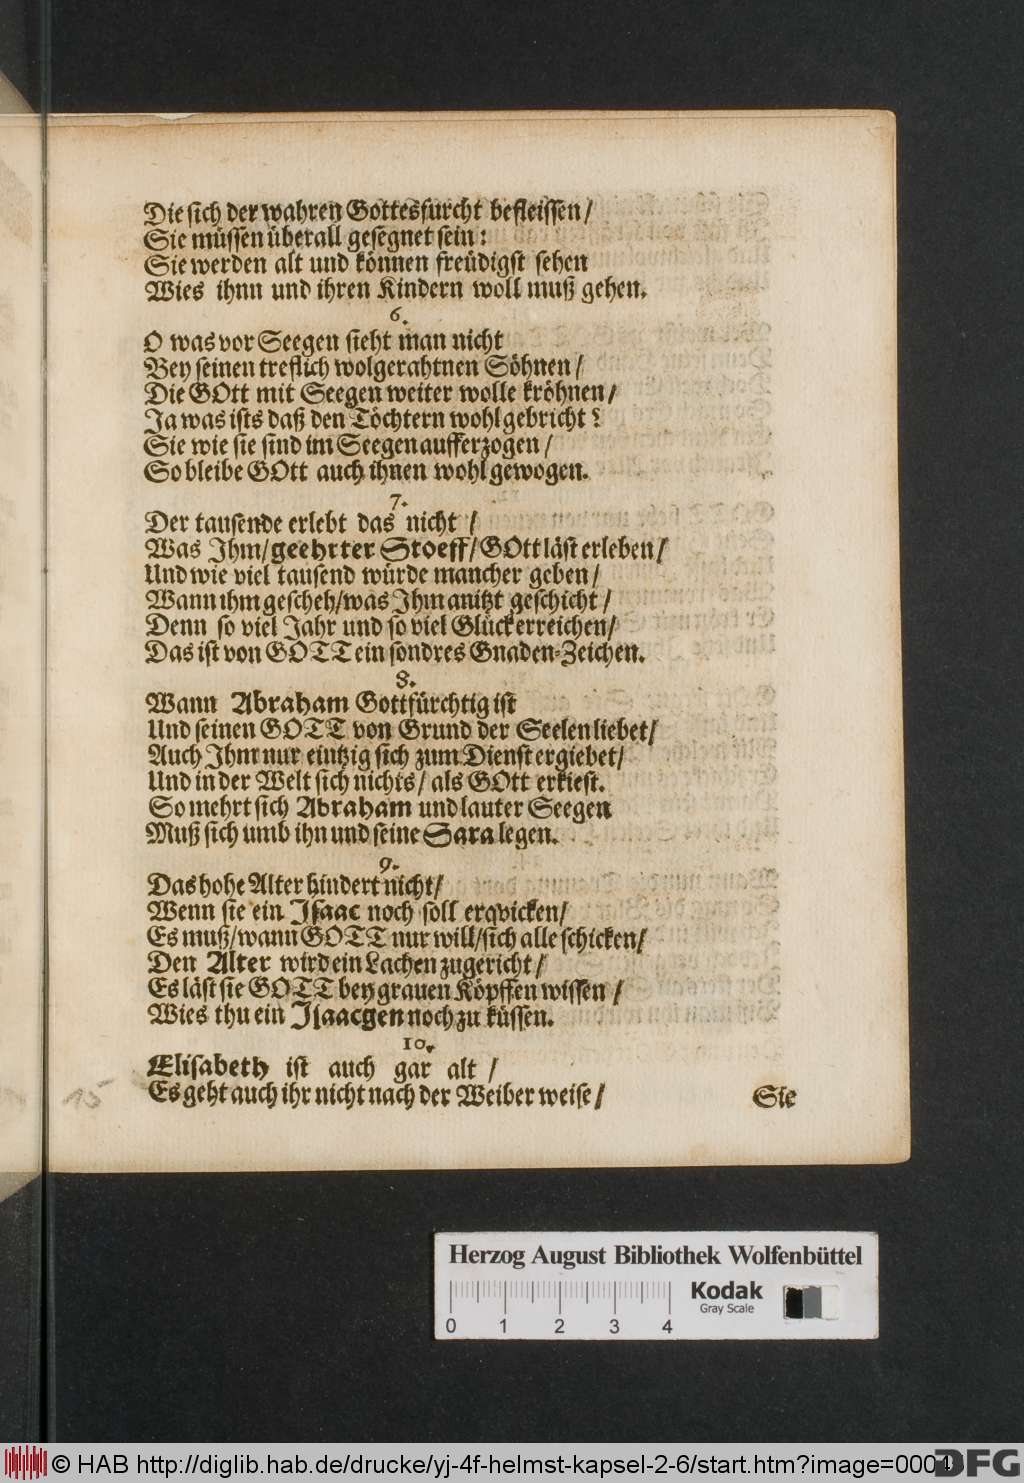 Die sich der wahren Gottesfurcht befleissen/
Sie müssen überall gesegnet sein:
Sie werden alt und können freüdigst sehen
Wies ihnn und ihren Kindern woll muß gehen.
6.
O was vor Seegen sieht man nicht
Bey seinen treflich wolgerahtnen Söhnen/
Die GOtt mit Seegen weiter wolle kröhnen/
Ja was ists daß den Töchtern wohl gebricht?
Sie wie sie sind im Seegen aufferzogen/
So bleibe GOtt auch ihnen wohl gewogen.
7.
Der tausende erlebt das nicht/
Was Ihm/geehrter Stoeff/GOtt läst erleben/
Und wie viel tausend würde mancher geben/
Wann ihm gescheh/was Ihm anitzt geschicht/
Denn so viel Jahr und so viel Glück erreichen/
Das ist von GOTT ein sondres Gnaden-Zeichen.
8.
Wann Abraham Gottfürchtig ist
Und seinen GOTT von Grund der Seelen liebet/
Auch Ihm nur eintzig sich zum Dienst ergiebet/
Und in der Welt sich nichts/ als GOtt erkiest.
So mehrt sich Abraham und lauter Seegen
Muß sich umb ihn und seine Sara legen.
9.
Das hohe Alter hindert nicht/
Wenn sie ein Isaac noch soll erqvicken/
Es muß/wann GOTT nur will/sich alle schicken/
Den Alter wird ein Lachen zugericht/
Es läst sie GOTT bey grauen Köpffen wissen/
Wies thu ein Isaacgen noch zu küssen.
10.
Elisabeth ist auch gar alt/
Es geht auch ihr nicht nach der Weiber weise/
Sie
15
Herzog August Bibliothek Wolfenbüttel
Kodak
Gray Scale
0 1 2 3 4
© HAB http://diglib.hab.de/drucke/yj-4f-helmst-kapsel-2-6/start.htm?image=0004
DFG